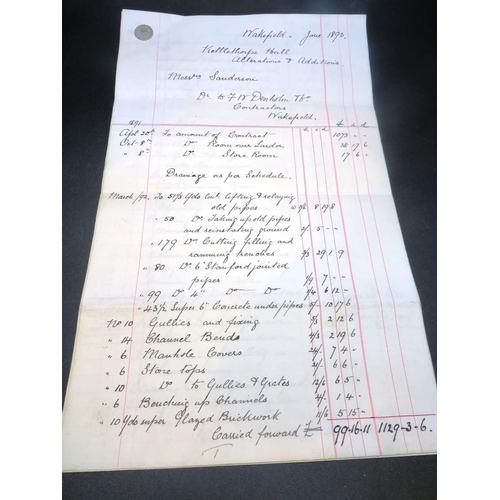 Wakefield. June 1890.
Kettlethorpe Hall
Alterations & Additions.
Messrs Sanderson
Dr to F W Denholm
Contractors
Wakefield.
1891 £ s d £ s d
April 20th To amount of Contract 1073 - -
Oct. 8th Do Room over Larder 38 17 6
" 8th Do Store Room 17 6 -
Drainage as per Schedule.
March/92. To 51/3 yds lifting & relaying
old pipes 8 19 8
" 50 Do Taking up old pipes
and reinstating ground 2/- 5 - -
" 179 Do Cutting filling and
ramming trenches 3/3 29 1 9
" 80 Do 6" Stanford jointed
pipes 1/9 7 - -
" 99 Do 4" Do Do 1/4 6 12 -
" 43 1/2 Super 6" Concrete under pipes 5/- 10 17 6
No 10 Gullies and fixing 5/3 2 12 6
" 14 Channel Bends 4/3 2 19 6
" 6 Manhole Covers 24/- 7 4 -
" 6 Stove Tops 21/- 6 6 -
" 10 Do to Gullies & Grates 12/6 6 5 -
" 6 Benching up Channels 4/- 1 4 -
" 10 Yds super Glazed Brickwork 11/6 5 15 -
Carried forward £ 99-16-11 1129-3-6.